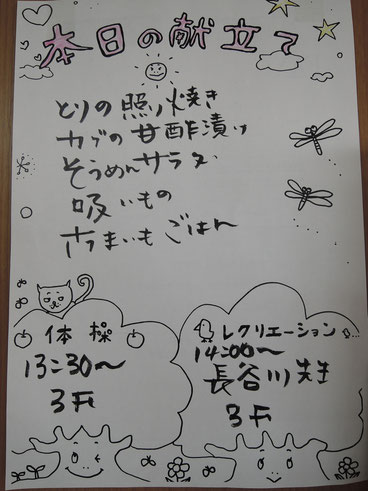 本日の献立て
とりの照り焼き
カブの甘酢漬け
そうめんサラダ
吸いもの
さつまいもごはん
体操
13:30〜
3F
レクリエーション
14:00〜
長谷川先生
3F